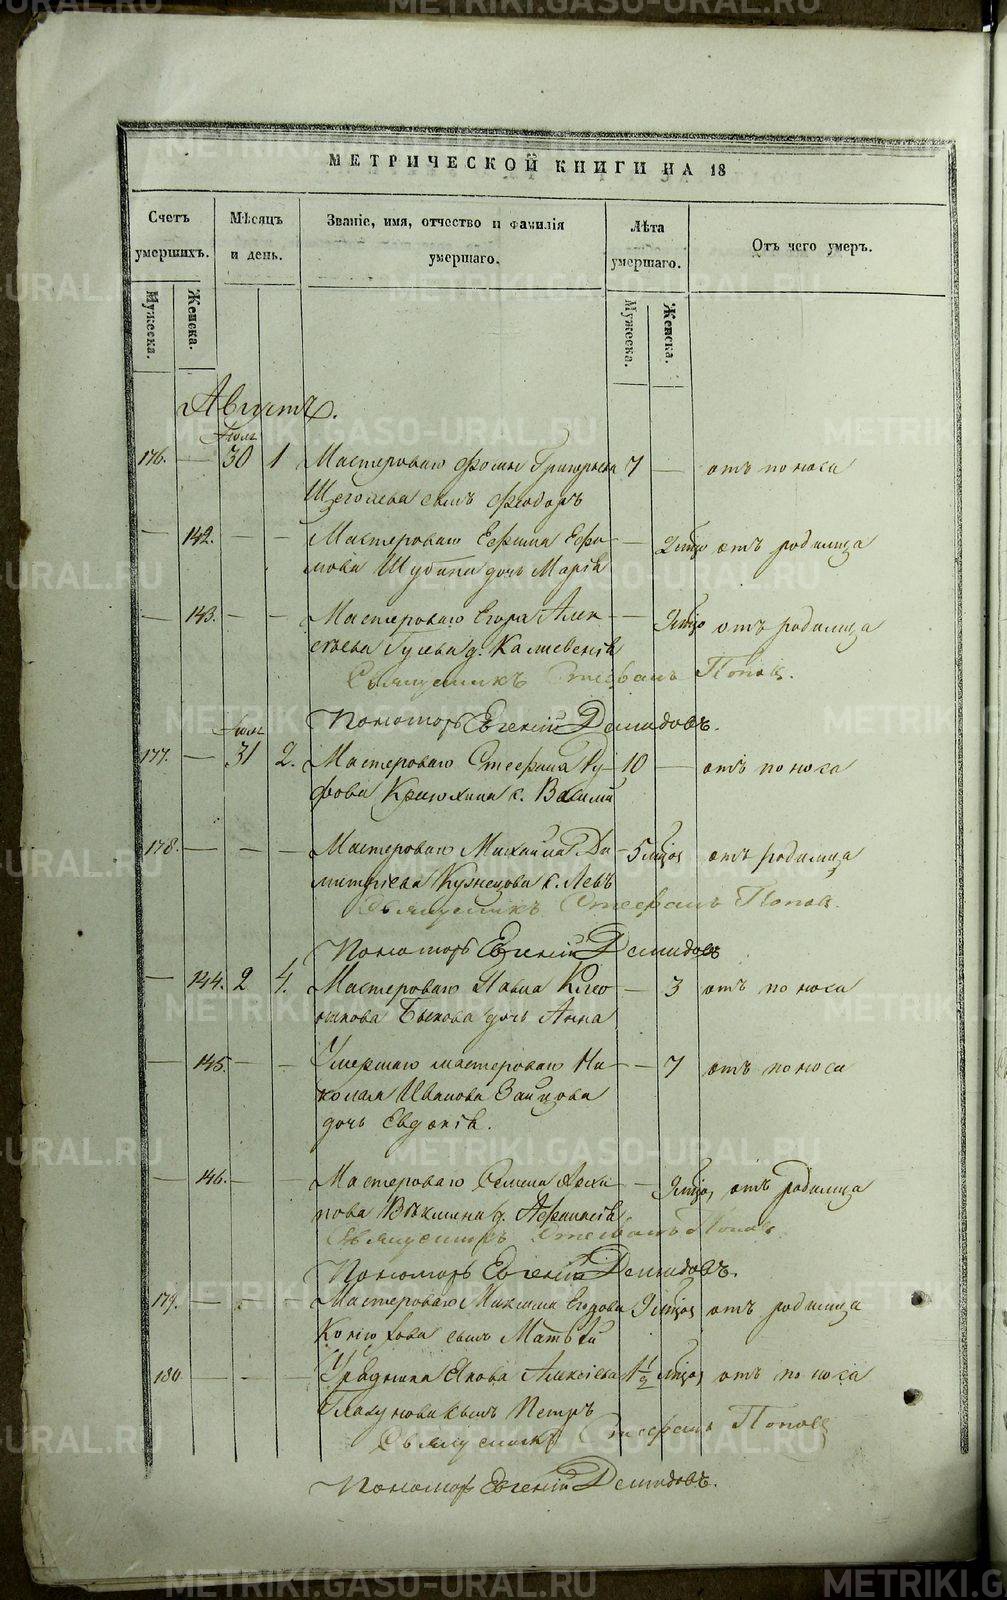 МЕТРИЧЕСКОЙ КНИГИ НА 18
Счетъ умершихъ.
Мужеска.
Женска.
Мѣсяцъ и день.
Званіе, имя, отчество и фамилія умершаго.
Лѣта умершаго.
Мужеска.
Женска.
Отъ чего умеръ.
Августъ.
Іюля
176. — 30 1 Мастероваго Фомы Григорьева 7 — отъ поноса
Щеголева сынъ Феодоръ
— 142. — — Мастероваго Ефима Ефи— — отъ родимца
мова Шубина дочь Марія
— 143. — — Мастероваго Егора Алек— — отъ родимца
сѣева Гулева д.
Священникъ Стефанъ Поповъ.
Пономарь Евгеній Демидовъ.
Іюля
177. — 31 2. Мастероваго Стефана 10 — отъ поноса
с. Василій
178. — — — Мастероваго Михаила Ди— 5 мѣсяц отъ родимца
митріева Кузнецова с. Левъ
Священникъ Стефанъ Поповъ.
Пономарь Евгеній Демидовъ
— 144. 2 4. Мастероваго Павла — 3 отъ поноса
Быкова дочь Анна
— 145. — — Умершаго мастероваго Ни— — 7 отъ поноса
колая Иванова Зайцова
дочь Евдокія.
— 146. — — Мастероваго Семена — отъ родимца
д. Афанасія
Священникъ Стефанъ Поповъ
Пономарь Евгеній Демидовъ.
179. — — — Мастероваго Максима Егорова 9 мѣсяц отъ родимца
Конюхова сынъ Матвѣй
180. — — — Урядника Якова Алексѣева 1½ мѣсяц отъ поноса
Глазунова сынъ Петръ
Священникъ Стефанъ Поповъ
Пономарь Евгеній Демидовъ.
METRIKI.GASO-URAL.RU